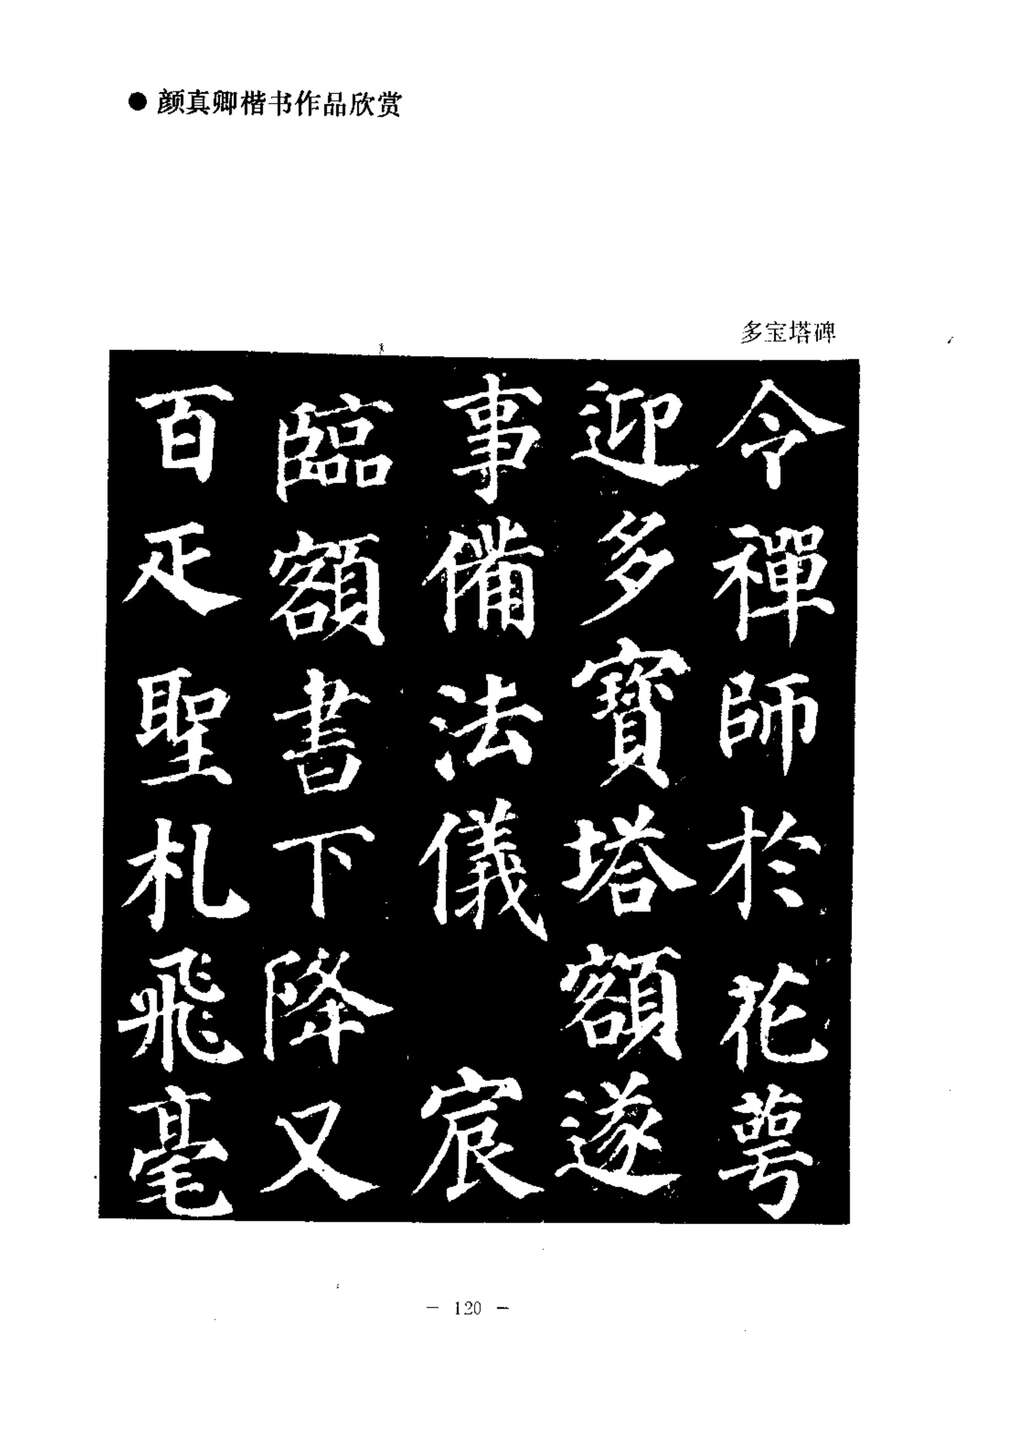 ● 颜真卿楷书作品欣赏
多宝塔碑
令禪師於花萼
迎多寶塔額遂
事備法儀 宸
臨額書下降又
百疋聖札飛毫
- 120 -